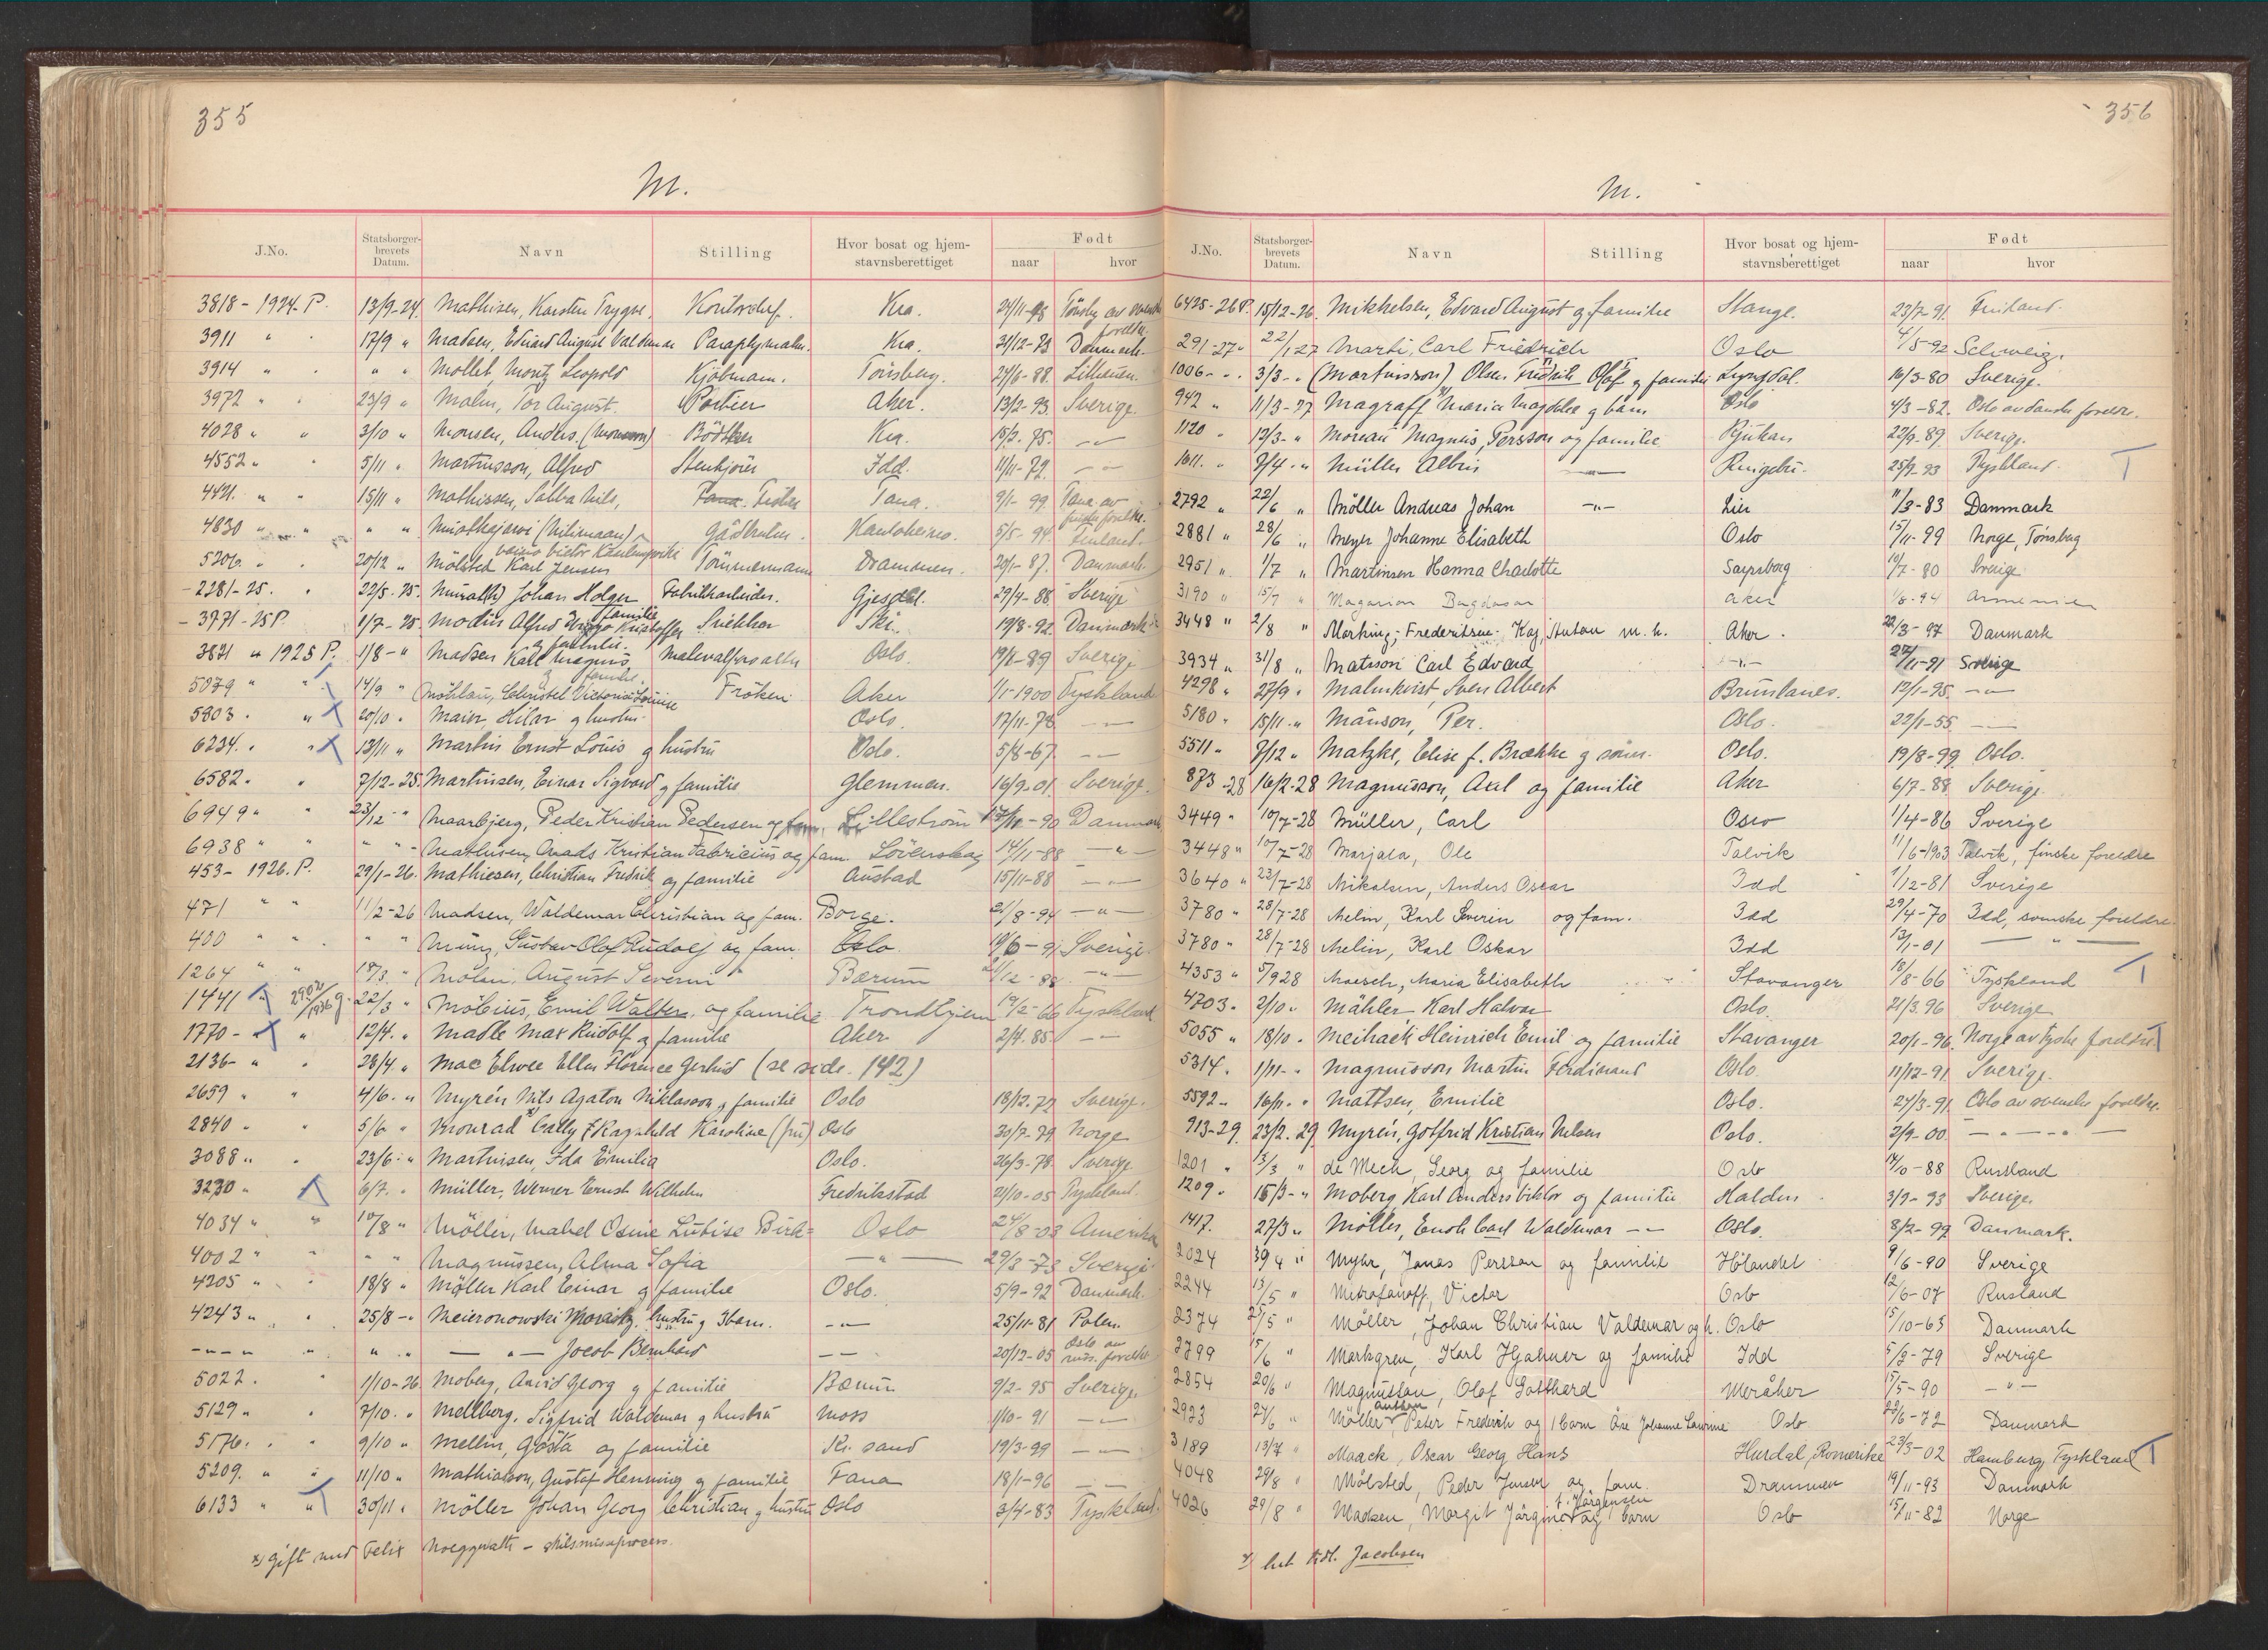 355
M.
J.No. Statsborgerbrevets Datum. Navn Stilling Hvor bosat og hjemstavnsberettiget Født naar hvor
3818 - 1924. P. 13/9-24. Mathisen, Karsten Trygve. Kontorchef. Kra. 24/11-98 Tönsby av svenske foreldre.
3911 " " 17/9 " Madsen, Edvard August Valdemar Paraplymaker. Kra. 31/12-73 Danmark.
3914 " " " " Mollet, Moritz Leopold Kjöbmann. Tönsberg. 24/6-88. Litauen.
3972 " " 23/9 " Malm, Tor August. Portier Aker. 13/2-93. Sverige.
4028 " " 3/10 " Monsen, Anders. (Monsson) Bödtker Kra. 15/2-75. -"-
4552 " " 5/11 " Martinsson, Alfred Stenhjører Idd. 11/11-72. -"-
4421. " " 15/11 " Mathissen, Sabba Nils, Fana. Fisker Tana. 9/1-99 Tana av finske foreldre.
4830 " " " " Mustkajärvi (Niliman) Gårdbruker. Kautokeino. 5/5-94. Finland.
Väinö Victor
5206. " " 20/12 " Mölsted Karl Jensen Tömmermann Drammen. 20/1-87. Danmark
- 2281-25. " 22/5-25. Johan Holger Fabrikkarbeider. Gjesdal. 29/4-88 Sverige
familie
- 3771-25 P. 1/7-25. Modin Alfred Kristoffer Snekker Ski. 19/8-92. Danmark
og familie.
3831 " 1925 P. 1/8-" Madsen Karl Magnus, Materialforvalter Oslo. 19/8-89 Sverige
og familie.
5079 " " 14/9 " Möhlau, Christel Victoria Louise Fröken Aker 1/1-1900 Tyskland
5803. " 20/10 " Maier, Hilar og hustru Oslo. 17/11-78 -"-
6234. " 13/11 " Martin Ernst Louis og hustru Oslo. 5/8-67. -"-
6582. " 7/12-25 Martinsen, Einar Sigvard og familie Glemmen. 16/9-01. Sverige.
6949 " " 23/12 " Maarbjerg, Peder Kristian Pedersen og fam. Lillestrøm 17/11-90 Danmark
6938 " " " " Mathisen, Mads Kristian Fabricius og fam. Lørenskog 14/11-88 -"-
453- 1926. P. 29/1-26. Mathiesen, Christian Fredrik og familie Austad 15/11-88 -"-
471 " " 11/2-26 Madsen, Waldemar Christian og fam. Borge. 21/8-94 -"-
400 " " " " Münz, Gustav Olof Rudolf og fam. Oslo. 19/6-91 Sverige.
1264 " " 18/3 " Molin, August Severin Bærum 21/12-88 -"-
1441 " 2902/1936 J. 22/3 " Möbius, Emil Walter, og familie Trondhjem 19/2-66 Tyskland
1770- " " 12/4. " Madle Max Rudolf og familie Aker 2/4. 85. -"-
2136- " " 28/4. " Mac Elwee Ellen Florence Gerhird (se side. 142)
2659 " " 4/6. " Myrén Nils Agaton Niklasson og familie Oslo 18/12. 72 Sverige.
2840 " " 5/6 " Monrad x) Cally f. Ragnhild Karoline (fru) Oslo 30/7-79 Norge
3088 " " 23/6 " Martinsen, Ida Emilia Oslo. 26/3-78. Sverige
3230 " 6/7. " Müller, Werner Ernst Wilhelm Fredrikstad 21/10-05 Tyskland.
4034 " " 10/8 " Möller, Mabel Osnie Lubise Birk= Oslo 24/8-03 Amerika
4002 " " " " Magnussen, Alma Sofia -"- 29/3-73 Sverige
4205 " " 18/8 " Möller Karl Einar og familie Oslo. 5/9-92 Danmark
4243 " " 25/8-" Meieronowski Moritz. hustru og 3 barn. -"- 25/11-81 Polen.
-"-"-" " " " -"- Jacob Bernhard -"- 20/12-05 Oslo av russ. foreldre
5022. " 1/10-26 Moberg, Arvid Georg og familie Bærum 9/2-95 Sverige.
5129 " " 7/10. " Mellberg, Sigfrid Waldemar og hustru Moss 1/10-91 -"-
5176. " " 9/10 " Mellin, Gösta og familie Kr. sand 19/3-99 -"-
5209. " " 11/10 " Mathiasson, Gustaf Henning og familie Fana 18/1-96 -"-
6133 " " 30/11 " Möller Johan Georg Christian og hustru Oslo 3/4-83 Tyskland.
x) gift med Felix Noeggerath - skilsmisseprocess.
356
M.
J.No. Statsborgerbrevets Datum. Navn Stilling Hvor bosat og hjemstavnsberettiget Født naar hvor
6425-26 P. 15/12-26. Mikkelsen, Edvard August og familie Stange. 23/7-91. Finland.
291-27 " 22/1 27 Marti, Carl Friedrich Oslo 4/5-92 Schweiz.
1006- " 3/3- " (Martinsson) Olsen Fredrik Olof og familie Lyngdal. 16/3-80 Sverige.
942 " 11/3-27 Magraff Maria Magdalene og barn Oslo 4/3-82. Oslo av danske foreldre.
1120 " 12/3- " Moreau Magnus, Persson og familie Rjukan 22/9-89. Sverige.
1611. " 7/4. " Müller Albin -"- Ringebu. 25/9 93 Tyskland.
2792 " 22/6 " Möller Andreas Johan -"- Lier 11/3-83 Danmark
2881 " 28/6 " Meyer Johanne Elisabeth Oslo 15/11-99 Norge, Tønsberg
2951 " 1/7 " Martinsen Hanna Charlotte Sarpsborg 10/7-80 Sverige
3190 " 15/7 " Magarian Bagdasar Aker 1/8-94 Armenien
3448 " 2/8 " Morking-Frederiksen- Kaj Anton m. h. Aker. 22/3-97 Danmark
3934 " 31/8 " Matsson Carl Edvard -"- 27/11-91 Sverige
4298 " 27/9 " Malmkvist, Sven Albert Brunlanes. 12/1-95. -"-
5180 " 15/11. " Månson, Per. Oslo. 22/1-55 -"-
5511 " 7/12 " Matzke, Elise f. Brække og sønn. Oslo. 19/8-99 Oslo.
873-28 16/2-28 Magnusson, Axel og familie Aker 6/7-88 Sverige.
3449 " 10/7-28 Müller, Carl Oslo 1/4-86 Sverige
3448 " 10/7-28 Marjala, Ole Talvik 11/6-1903 Talvik, finske foreldre
3640 " 23/7-28 Mikalsen, Anders Oscar Idd 1/12-81 Sverige
3780 " 28/7-28 Melin, Karl Severin og fam. Idd 29/4-70 Idd, svenske foreldre.
3780 " 28/7-28 Melin, Karl Oskar Idd 13/1-01 -"-
4353 " 5/928 Maesch, Maria Elisabeth Stavanger 18/8-66 Tyskland
4703 " 2/10 " Mähler Karl Halvar Oslo. 21/3. 96 Sverige
5055 " 18/10 " Meihack Heinrich Emil og familie Stavanger 20/1-96. Norge av tyske foreldre.
5314. " 1/11- " Magnusson Martin Ferdinand Oslo 11/12-91 Sverige.
5592- " 16/11. " Mattsen, Emilie Oslo. 24/3-91. Oslo av svenske foreldre.
713-29. 23/2. 29 Myrén, Gotfrid Kristian Nilsen Oslo. 2/9-00. -"-"-
1201 " 13/3 " de Meck, Georg og familie Oslo 14/10-88 Russland
1209 " 15/3- " Moberg, Karl Anders Viktor og familie Halden 3/9-93 Sverige
1417. 27/3 " Möller, Enok Carl Waldemar -"- Oslo. 8/2-99 Danmark.
2024 39/4 " Myhr, Jonas Persson og familie Hölandet 9/6-90 Sverige
2244 13/5 " Mitrofanoff, Victor Oslo 12/6-07 Rusland
2374 25/5 " Møller, Johan Christian Valdemar og h. Oslo 15/10-65 Danmark
2799 15/6 " Markgren, Karl Hjalmar og familie Idd 5/3-79 Sverige
2854 20/6 " Magnusson, Olof Gotthard Meråker 15/5-90 -"-
Anthon
2993 27/6 " Möller Peter Frederik og 1 barn Åse Johanne Lavrine Oslo 22/6-72 Danmark
3189 13/7 " Maack, Oscar Georg Hans Hurdal, Romerike 23/3-02 Hamburg, Tyskland
4048 29/8 " Mølsted, Peder Jensen og fam. Drammen 19/11-93 Danmark
f. Jørgensen
4026 29/8 " Madsen, Margit Jørgine og 1 barn Oslo 15/11-82 Norge
x) het tidl. Jacobsen